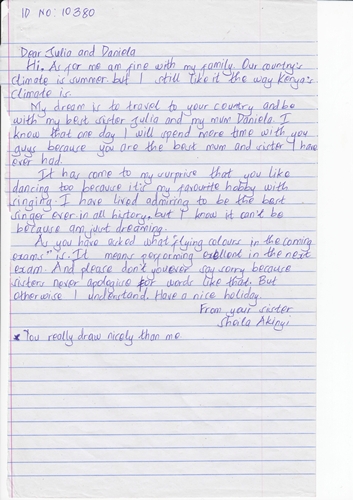 ID NO: 10380
Dear Julia and Daniela
Hi. As for me am fine with my family. Our country's
climate is summer but I still like it the way Kenya's
climate is.
My dream is to travel to your country and be
with my best sister Julia and my mum Daniela. I
know that one day I will spend more time with you
guys because you are the best mum and sister I have
ever had.
It has come to my surprise that you like
dancing too because it's my favourite hobby with
singing. I have lived admiring to be the best
singer ever in all history. but I know it can't be
because am just dreaming.
As you have asked what "flying colours in the coming
exams" is. It means performing excellent in the next
exam. And please don't you ever say sorry because
sisters never apologise for words like that. But
otherwise I understand. Have a nice holiday.
From your sister
Sheila Akinyi
* You really draw nicely than me